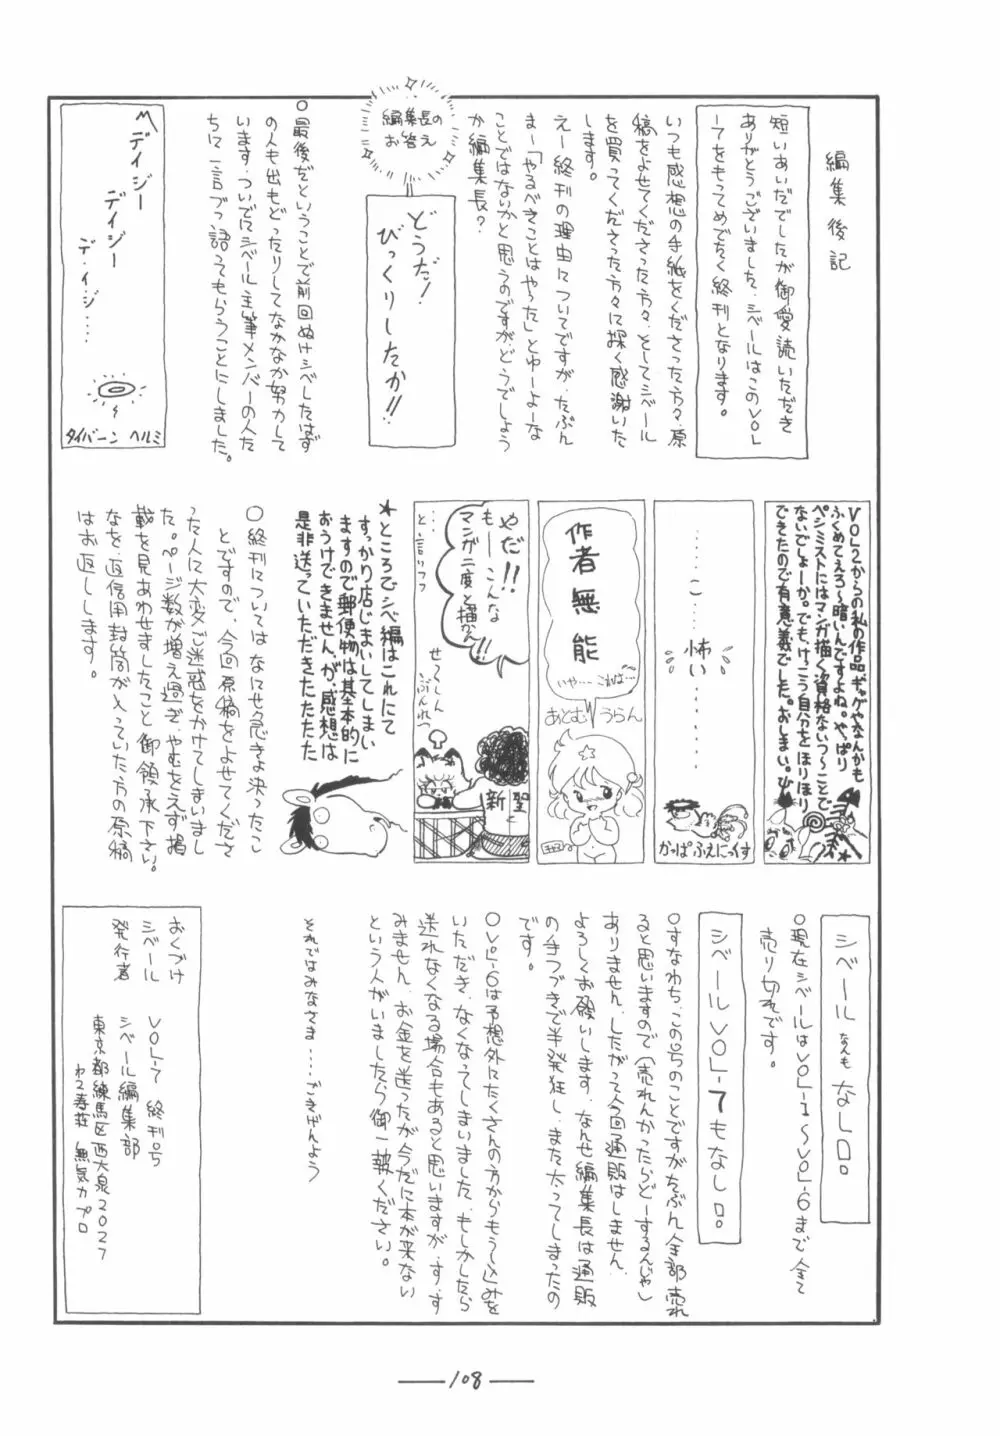 編集後記
短いあいだでしたが御愛読いただき
ありがとうございました。シベールはこのVOL
ー7をもってめでたく終刊となります。
いつも感想の手紙をくださった方々、原
稿をよせてくださった方々、そしてシベール
を買ってくださった方々に深く感謝いた
します。
えー終刊の理由についてですが、たぶん
まー「やるべきことはやった」とゆーよーな
ことではないかと思うのですが、どうでしょう
か編集長?
編集長の
お答え
どうだ!
びっくりしたか!!
○最後だということで前回ぬけシベしたはず
の人も出もどったりしてなかなか努力して
います。ついでにシベール主筆メンバーの人た
ちに一言づつ語ってもらうことにしました。
デイジー
デイジー
デ・イ・ジ・・・・
タイバーン ヘルミ
VOL2からの私の作品、ギャグやなんかも
ふくめてえろ〜暗いんですよね。やっぱり
ペシミストにはマンガ描く資格ないつ〜ことで
ないでしょーか。でも、けっこう自分をほりほり
できたので有意義でした。おしまい。
・・・・・・こ、怖い・・・・・・
かっぱふぇにっくす
作者無能
いや…これは…
あとむ
うらん
やだ!!
もーーこんな
マンガ二度と描かん!!
・・・・と、言りつつ
せっしん
ぶんれつ
新聖
★ところでシベ編はこれにて
すっかり店じまいしてしまい
ますので郵便物は基本的に
おうけできません。が、感想は
是非送っていただきたたたた
○終刊についてはなにせ急きょ決ったこ
とですので、今回原稿をよせてくださ
った人に大変ご迷惑をかけてしまいまし
た。ページ数が増え過ぎ、やむをえず掲
載を見あわせましたこと御領承下さい。
なを、返信用封筒が入っていた方の原稿
はお返しします。
シベールなんもなし□。
○現在シベールはVOL-1〜VOL-6まで全て
売り切れです。
シベールVOL-7もなし□。
○すなわち、この号のことですがたぶん全部売れ
ると思いますので(売れんかったらどーするんじゃ)
ありません。したがって今回通販はしません。
よろしくお願いします。なんせ編集長は通販
の手つづきで半発狂し、また太ってしまったの
です。
○VOL-6は予想外にたくさんの方からもうし込みを
いただき、なくなってしまいました。もしかしたら
送れなくなる場合もあると思いますが、す、す
みません。お金を送ったが今だに本が来ない
という人がいましたら御一報ください。
それではみなさま・・・・ごきげんよう
おくづけ
シベール VOL-7 終刊号
発行者 シベール編集部
東京都練馬区西大泉2027
無気力プロ
108